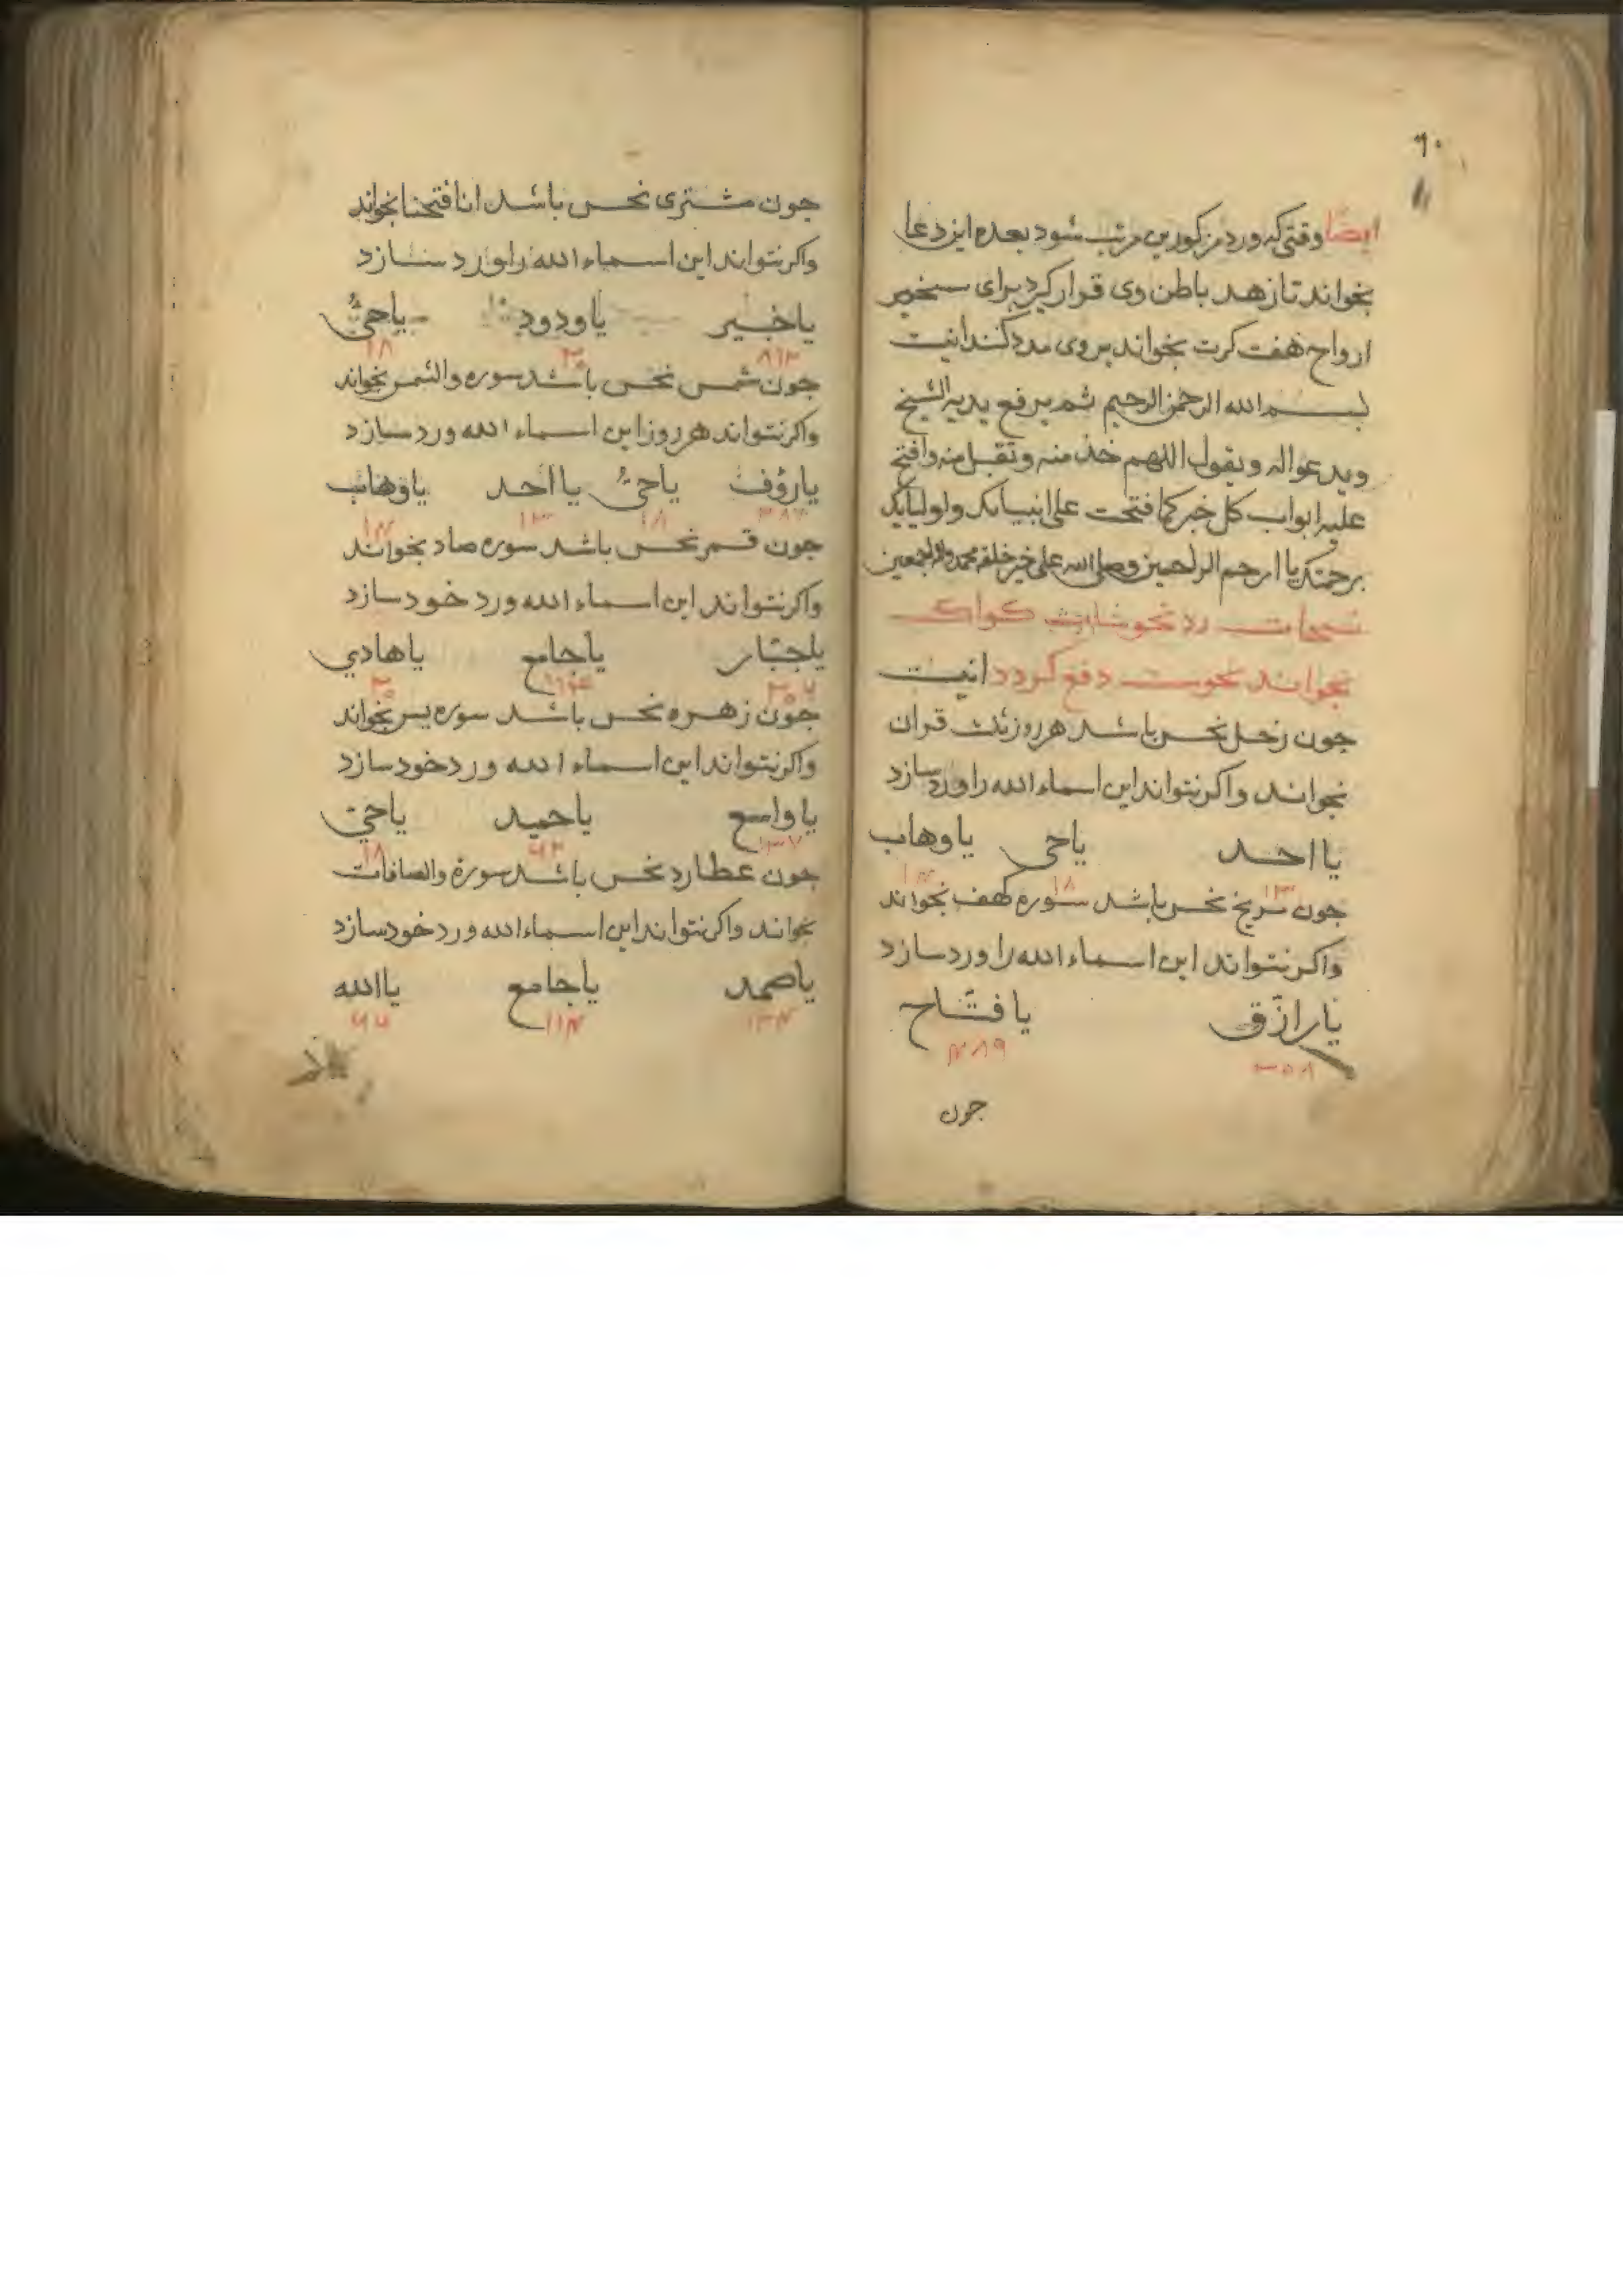 ٩٠
ایضًا وقتی که ورد مذکورین مرتب شود بعده این دعا
بخواند تا زهد باطن وی قرار کیرد برای تسخیر
ارواح هفت کرت بخواند بر وی مدد کنند اینست
بسم الله الرحمن الرحیم ثم یرفع یدیه الشیخ
ویدعوا له ویقول اللهم خذ منه وتقبل منه وافتح
علیه ابواب کل خیر کما فتحت علی انبیایک واولیایک
برحمتک یا ارحم الراحمین وصلی الله علی خیر خلقه محمد واله اجمعین
کواکب
بخواند نحوست دفع کردد اینست
جون زحل نحس باشد هر روز ثلث قران
بخواند واکر نتواند این اسماء الله را ورد سازد
یا احد یا حی یا وهاب
١٣ ١٨ ١۴
جون مریخ نحس باشد سوره کهف بخواند
واکر نتواند این اسماء الله را ورد سازد
یا رازق یا فتّاح
٣٥٨ ۴٨٩
جون
جون مشتری نحس باشد انا فتحنا بخواند
واکر نتواند این اسماء الله را ورد سازد
یا خبیر یا ودود یا حیّ
٨١٢ ٢٥ ١٨
جون شمس نحس باشد سوره والشمس بخواند
واکر نتواند هر روز این اسماء الله ورد سازد
یا رؤف یا حیّ یا احد یا وهاب
٣٨٧ ١٨ ١٣ ١۴
جون قمر نحس باشد سوره صاد بخواند
واکر نتواند این اسماء الله ورد خود سازد
یا جبّار یا جامع یا هادي
٢٥٦ ١١۴ ٢٥
جون زهره نحس باشد سوره یس بخواند
واکر نتواند این اسماء الله ورد خود سازد
یا واسع یا حمید یا حیّ
١٣٧ ٦٢ ١٨
جون عطارد نحس باشد سورة والصافات
بخواند واکر نتواند این اسماء الله ورد خود سازد
یا صمد یا جامع یا الله
١٣۴ ١١۴ ٦٦